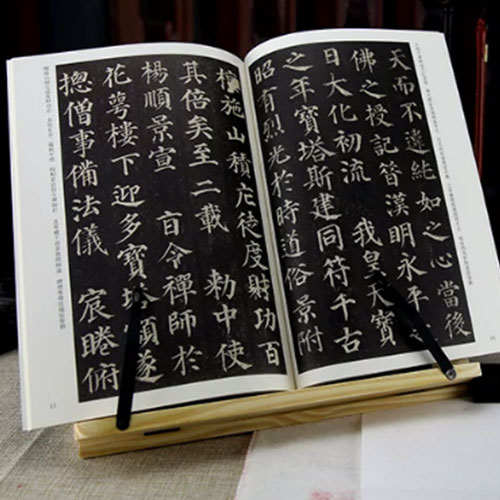 天而不違純如之心當後
佛之授記昔漢明永平之
日大化初流 我皇天寶
之年寶塔斯建同符千古
昭有烈光於時道俗景附
檀施山積庀徒度財功百
其倍矣至二載 勑中使
楊順景宣 旨令禪師於
花萼樓下迎多寶塔額遂
摠僧事備法儀 宸睠俯